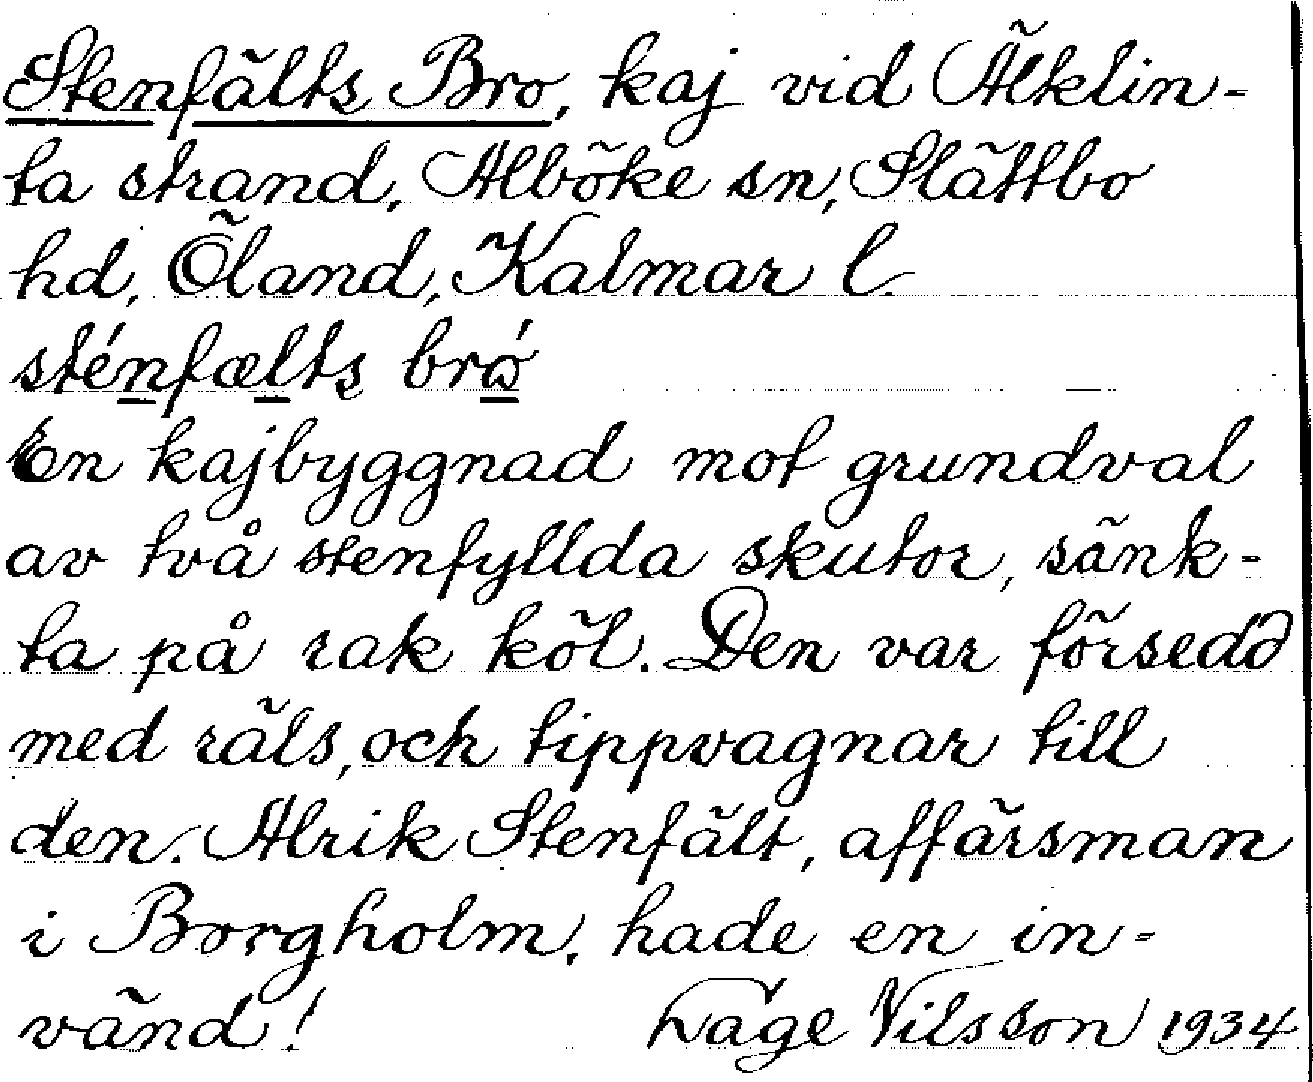 Stenfälts Bro, kaj vid Älklin-
ta strand, Alböke sn, Slättbo
hd, Öland, Kalmar l.
sténfælts bró
En kajbyggnad mot grundval
av två stenfyllda skutor, sänk-
ta på rak köl. Den var försedd
med räls, och tippvagnar till
den. Alrik Stenfält, affärsman
i Borgholm, hade en in-
vänd! Tage Nilsson 1934